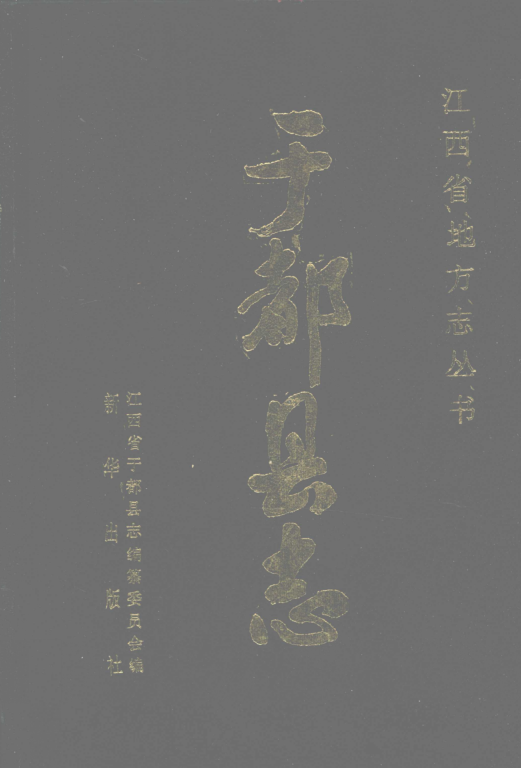 江西省地方志丛书
于都县志
江西省于都县志编纂委员会编
新华出版社